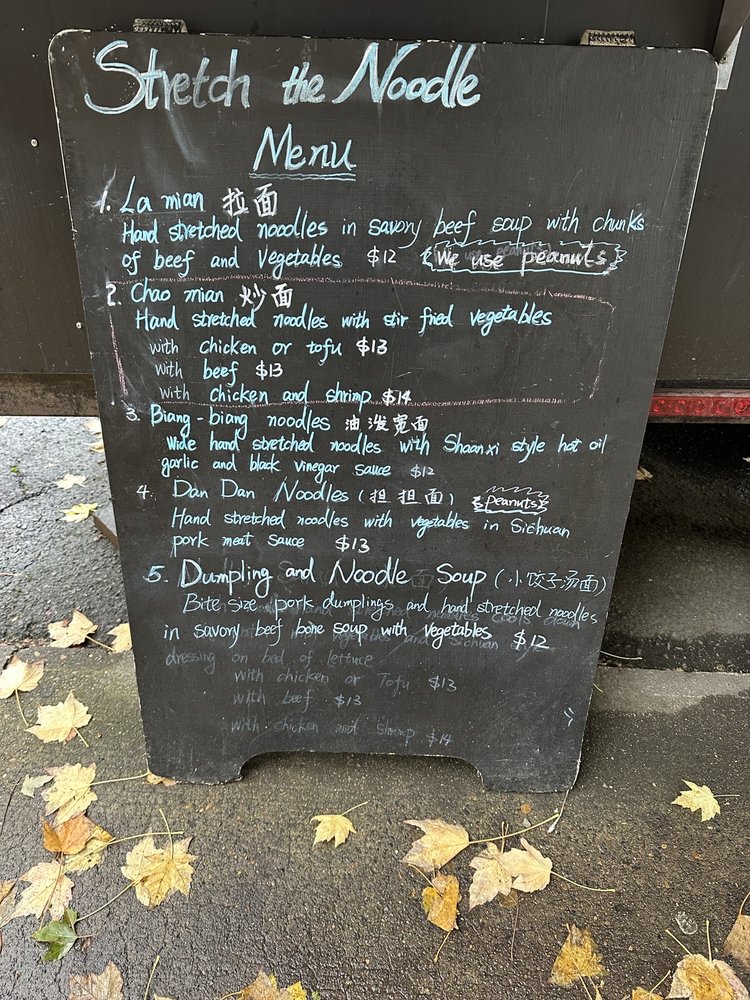 Stretch the Noodle
Menu
1. La mian 拉面
Hand stretched noodles in savory beef soup with chunks
of beef and vegetables $12 We use peanuts
2. Chao mian 炒面
Hand stretched noodles with stir fried vegetables
with chicken or tofu $13
with beef $13
with chicken and shrimp $14
3. Biang-biang noodles 油泼宽面
Wide hand stretched noodles with Shaanxi style hot oil
garlic and black vinegar sauce $12
4. Dan Dan Noodles (担担面) peanuts
Hand stretched noodles with vegetables in Sichuan
pork meat sauce $13
5. Dumpling and Noodle Soup (小饺子汤面)
Bite size pork dumplings and hand stretched noodles
in savory beef bone soup with vegetables $12
dressing on bed of lettuce
with chicken or Tofu $13
with beef $13
with chicken and shrimp $14